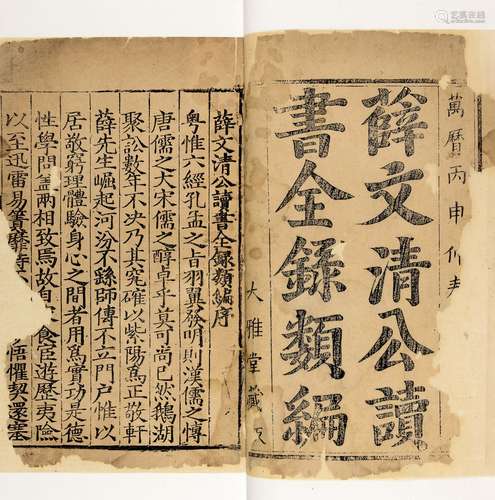 萬曆丙申仲春
薛文清公讀
書全録類編
大雅堂藏
薛文清公讀書全録類編序
粤惟六經孔孟之旨羽翼發明則漢儒之慱
唐儒之大宋儒之醇卓乎莫可尚已然鵝湖
聚訟數年不决乃其究確以紫陽爲正敬軒
薛先生崛起河汾不繇師傳不立門户惟以
居敬窮理體驗身心之間者用爲實功是德
性學問葢兩相致焉故自 食宦遊歷夷險
以至迅雷易簀 悟懼契還塞